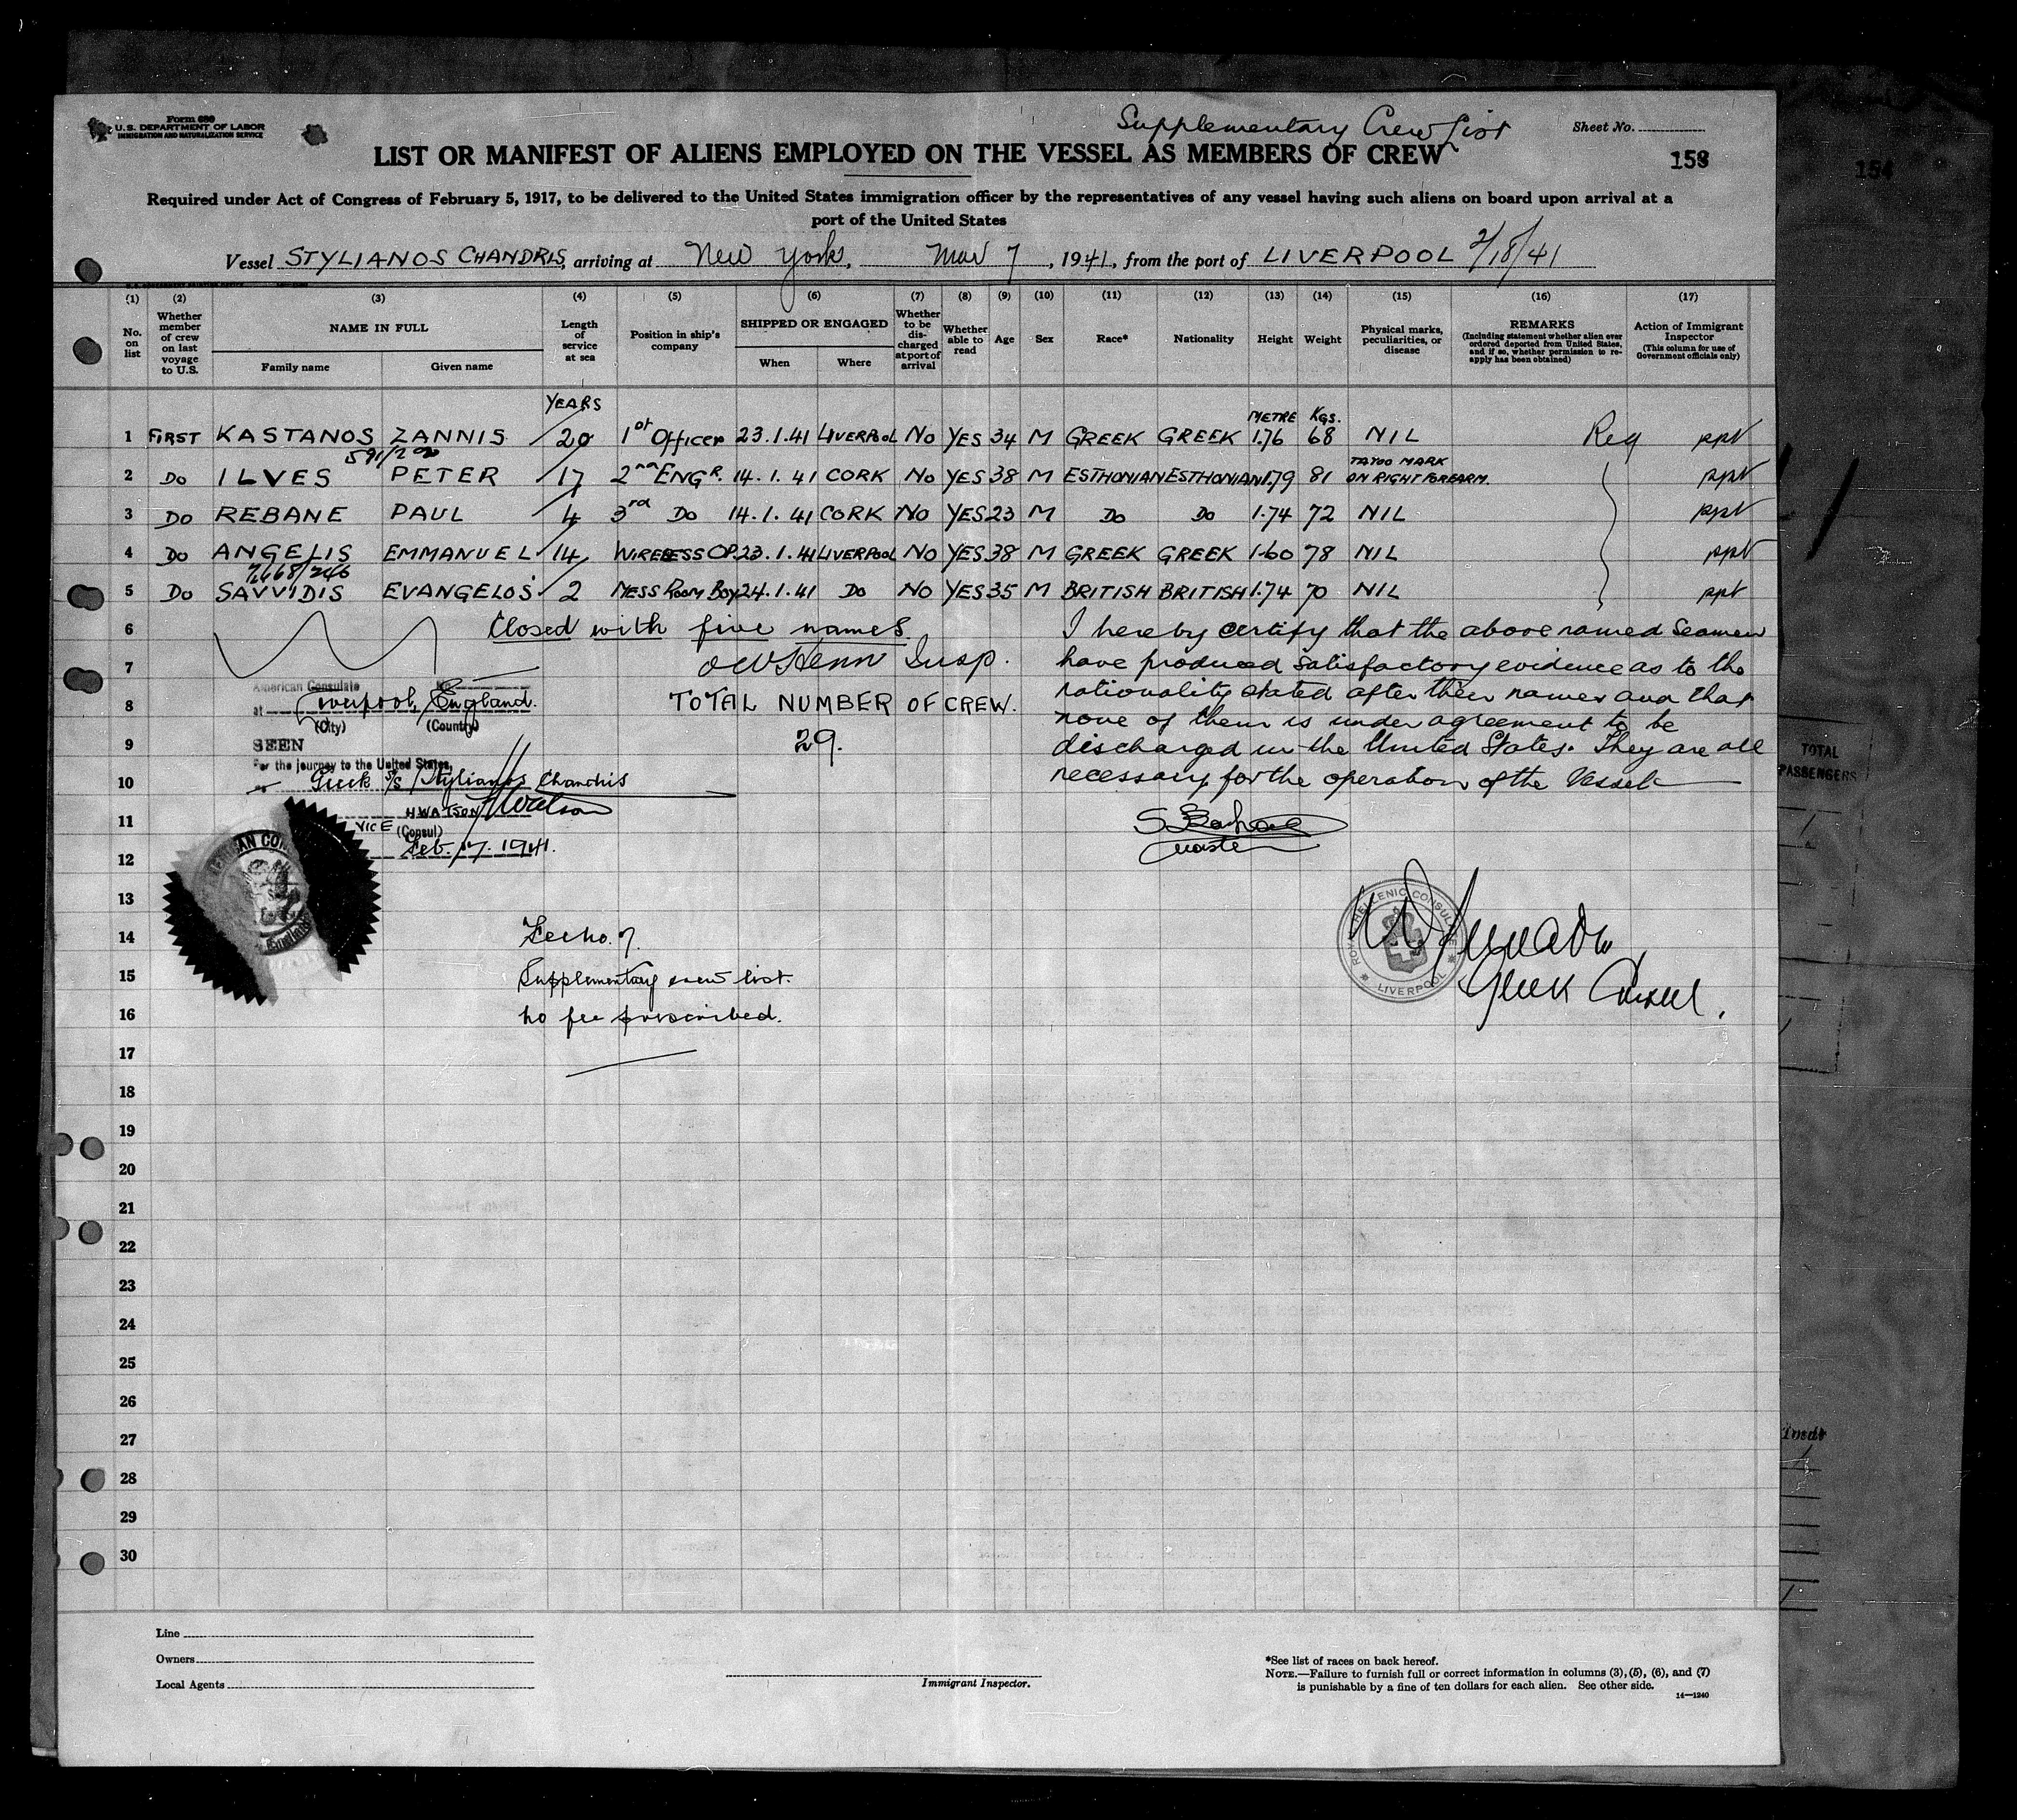 Form 680
U.S. DEPARTMENT OF LABOR
IMMIGRATION AND NATURALIZATION SERVICE
Supplementary Crew List
Sheet No.
LIST OR MANIFEST OF ALIENS EMPLOYED ON THE VESSEL AS MEMBERS OF CREW
153
154
Required under Act of Congress of February 5, 1917, to be delivered to the United States immigration officer by the representatives of any vessel having such aliens on board upon arrival at a
port of the United States
Vessel STYLIANOS CHANDRIS, arriving at New York, Mar 7, 1941, from the port of LIVERPOOL 2/18/41
(1) (2) (3) (4) (5) (6) (7) (8) (9) (10) (11) (12) (13) (14) (15) (16) (17)
No. on list
Whether member of crew on last voyage to U.S.
NAME IN FULL
Family name Given name
Length of service at sea
Position in ship's company
SHIPPED OR ENGAGED
When Where
Whether to be discharged at port of arrival
Whether able to read
Age
Sex
Race*
Nationality
Height
Weight
Physical marks, peculiarities, or disease
REMARKS
(Including statement whether alien ever ordered deported from United States, and if so, whether permission to reapply has been obtained)
Action of Immigrant Inspector
(This column for use of Government officials only)
YEARS METRE KGS.
1 FIRST KASTANOS ZANNIS 20 1st Officer 23.1.41 LIVERPOOL NO YES 34 M GREEK GREEK 1.76 68 NIL Reg ppt
591/200
2 DO ILVES PETER 17 2nd ENGR. 14.1.41 CORK NO YES 38 M ESTHONIAN ESTHONIAN 1.79 81 TATOO MARK ON RIGHT FOREARM. ppt
3 DO REBANE PAUL 4 3rd DO 14.1.41 CORK NO YES 23 M DO DO 1.74 72 NIL ppt
4 DO ANGELIS EMMANUEL 14 WIRELESS OP. 23.1.41 LIVERPOOL NO YES 38 M GREEK GREEK 1.60 78 NIL ppt
7668/246
5 DO SAVVIDIS EVANGELOS 2 MESS ROOM BOY 24.1.41 DO NO YES 35 M BRITISH BRITISH 1.74 70 NIL ppt
6 Closed with five names
7 Insp.
8 TOTAL NUMBER OF CREW.
9 29.
10
11
12
13
14
15
16
17
18
19
20
21
22
23
24
25
26
27
28
29
30
I hereby certify that the above named Seamen
have produced satisfactory evidence as to the
nationality stated after their names and that
none of them is under agreement to be
discharged in the United States. They are all
necessary for the operation of the Vessel
Master
American Consulate No.
at Liverpool, England.
(City) (Country)
SEEN
For the journey to the United States,
Greek S/S Stylianos Chandris
H WATSON HWatson
VICE (Consul)
Feb. 17. 1941.
AMERICAN CON
Supplementary crew list.
No fee prescribed.
ROYAL HELLENIC CONSULATE
LIVERPOOL
Greek Consul.
TOTAL
PASSENGERS
Line
Owners
Local Agents
Immigrant Inspector.
*See list of races on back hereof.
NOTE.—Failure to furnish full or correct information in columns (3), (5), (6), and (7)
is punishable by a fine of ten dollars for each alien. See other side.
14—1240